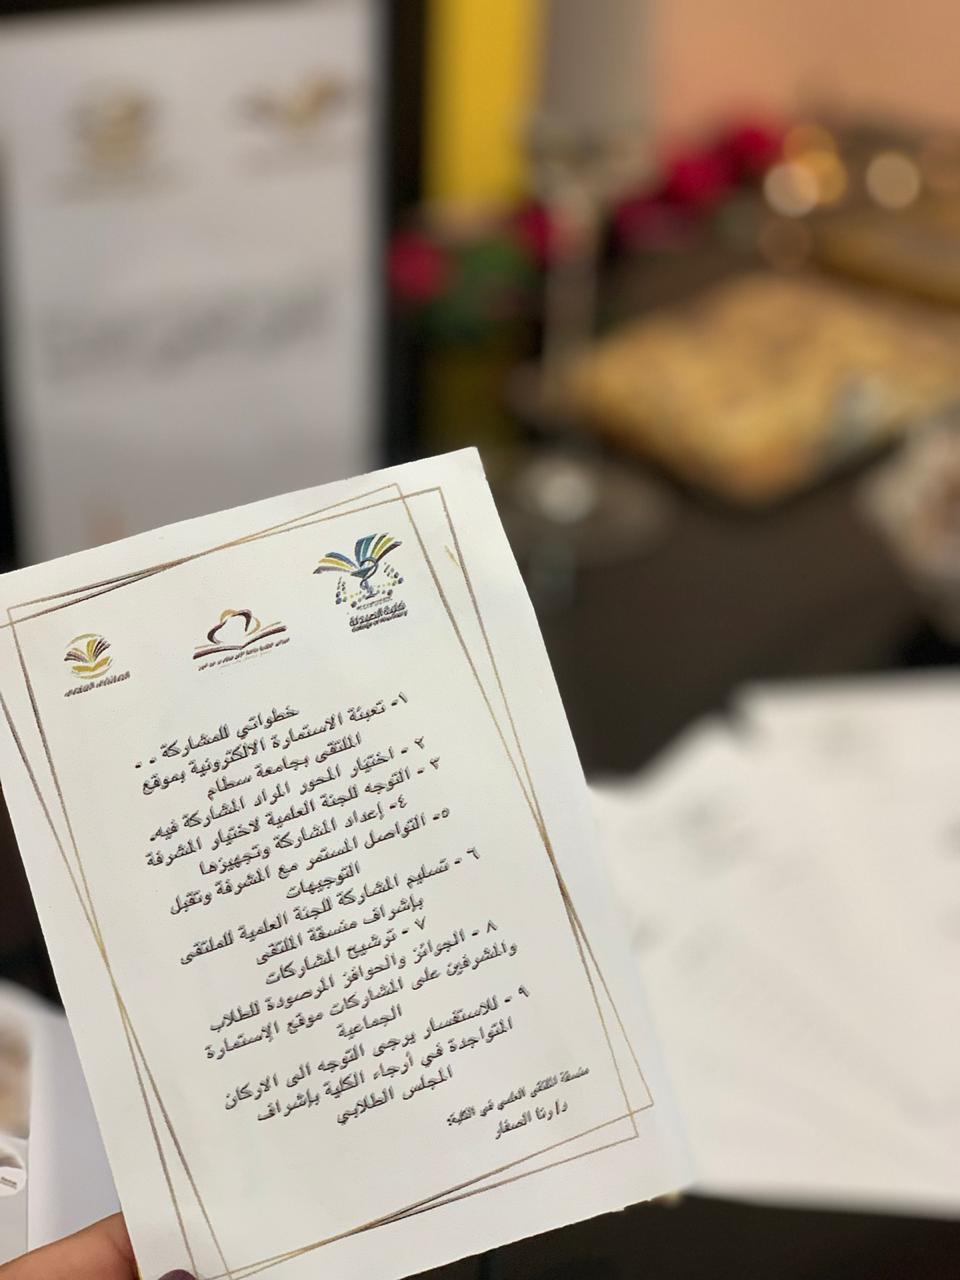 كلية الصيدلة
College of Pharmacy
خطواتي للمشاركة - -
١- تعبئة الاستمارة الالكترونية بموقع
الملتقى بجامعة سطام
٢ - اختيار المحور المراد المشاركة فيه.
٣ - التوجه للجنة العلمية لاختيار المشرفة
٤- إعداد المشاركة وتجهيزها
٥- التواصل المستمر مع المشرفة وتقبل
التوجيهات
٦ - تسليم المشاركة للجنة العلمية للملتقى
بإشراف منسقة الملتقى
٧ - ترشيح المشاركات
٨ - الجوائز والحوافز المرصودة للطلاب
والمشرفين على المشاركات موقع الإستمارة
الجماعية
٩ - للاستفسار يرجى التوجه الى الاركان
المتواجدة في أرجاء الكلية بإشراف
المجلس الطلابي
منسقة الملتقى العلمي في الكلية:
د/رنا الصفار